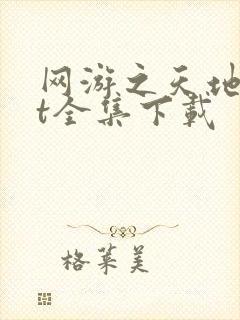 网游之天地
t全集下载
格莱美